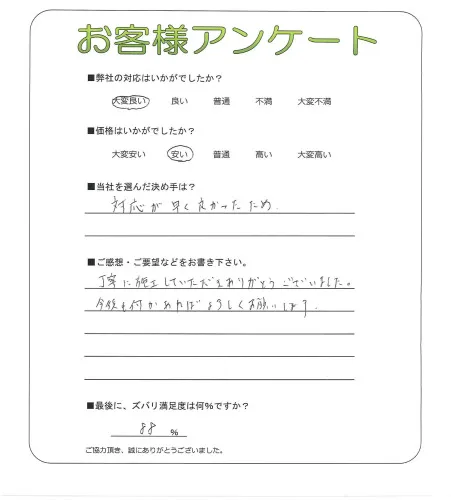 お客様アンケート
■弊社の対応はいかがでしたか？
大変良い 良い 普通 不満 大変不満
■価格はいかがでしたか？
大変安い 安い 普通 高い 大変高い
■当社を選んだ決め手は？
対応が早く良かったため.
■ご感想・ご要望などをお書き下さい。
丁寧に施工していただきありがとうございました。
今後も何かあればよろしくお願いします.
■最後に、ズバリ満足度は何%ですか？
88 %
ご協力頂き、誠にありがとうございました。